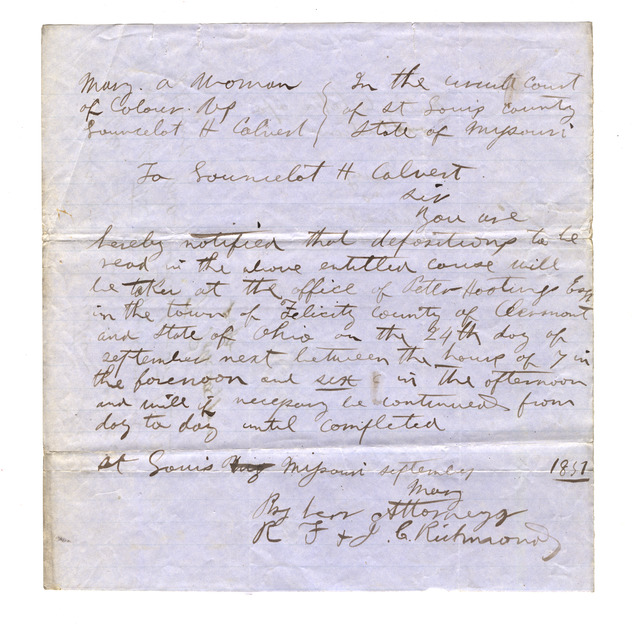 Mary. a Woman
of Colour. vs
Louncelot H Calvert
In the circuit Court
of St Louis County
State of Missouri
To Louncelot H Calvert.
Sir
You are
hereby notified that depositions to be
read in the above entitled cause will
be taken at the office of Peter Hooting Esq
in the town of Felicity County of Clermont
and State of Ohio on the 24th day of
september next between the hours of 7 in
the forenoon and six in the afternoon
and will if necessary be continued from
day to day until completed
St Louis Missouri september 1851
Mary
By her Attorneys
R F & J. C. Richmond